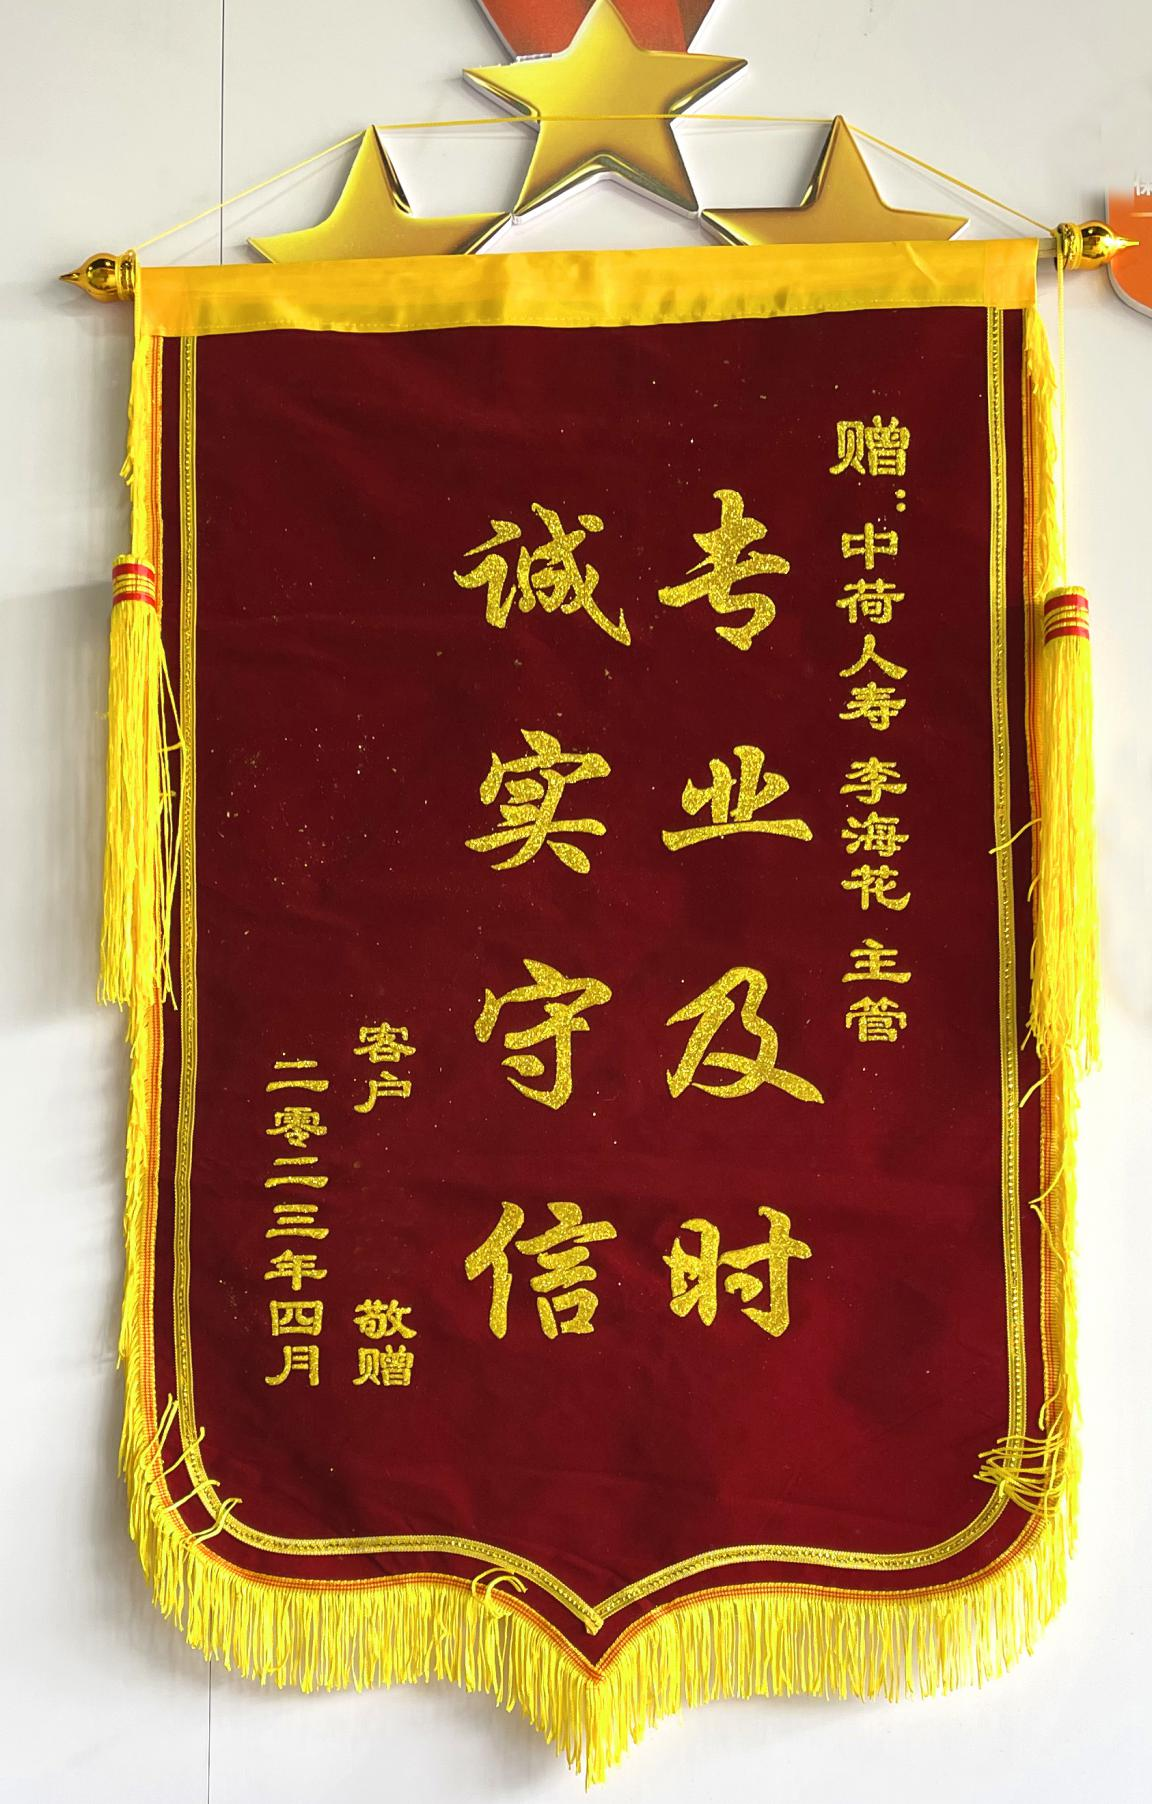 赠：中荷人寿 李海花 主管
专业及时
诚实守信
客户 敬赠
二零二三年四月